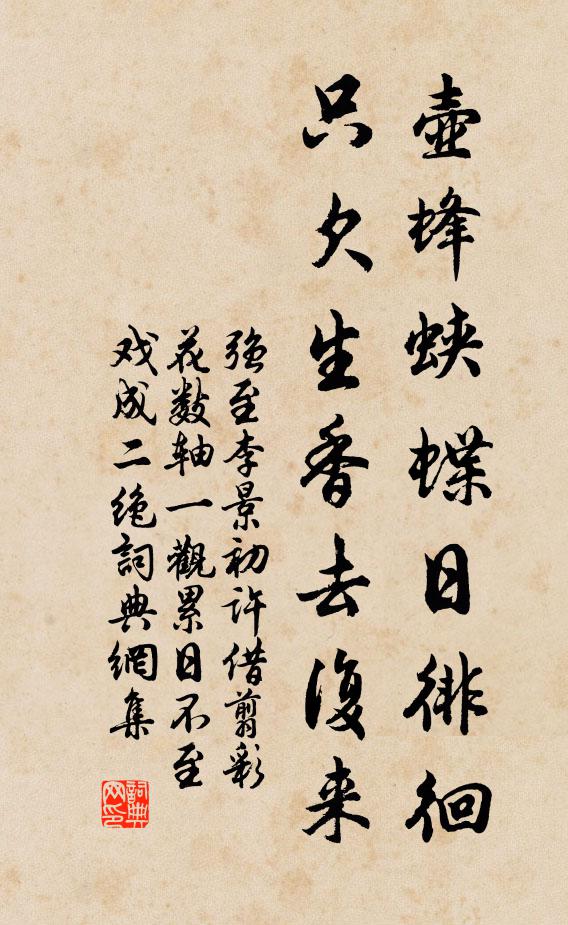 壺蜂蛺蝶日徘徊
只欠生香去復来
强至李景初许借剪彩
花数轴一觀累日不至
戏成二绝詞典網集
詞典網印